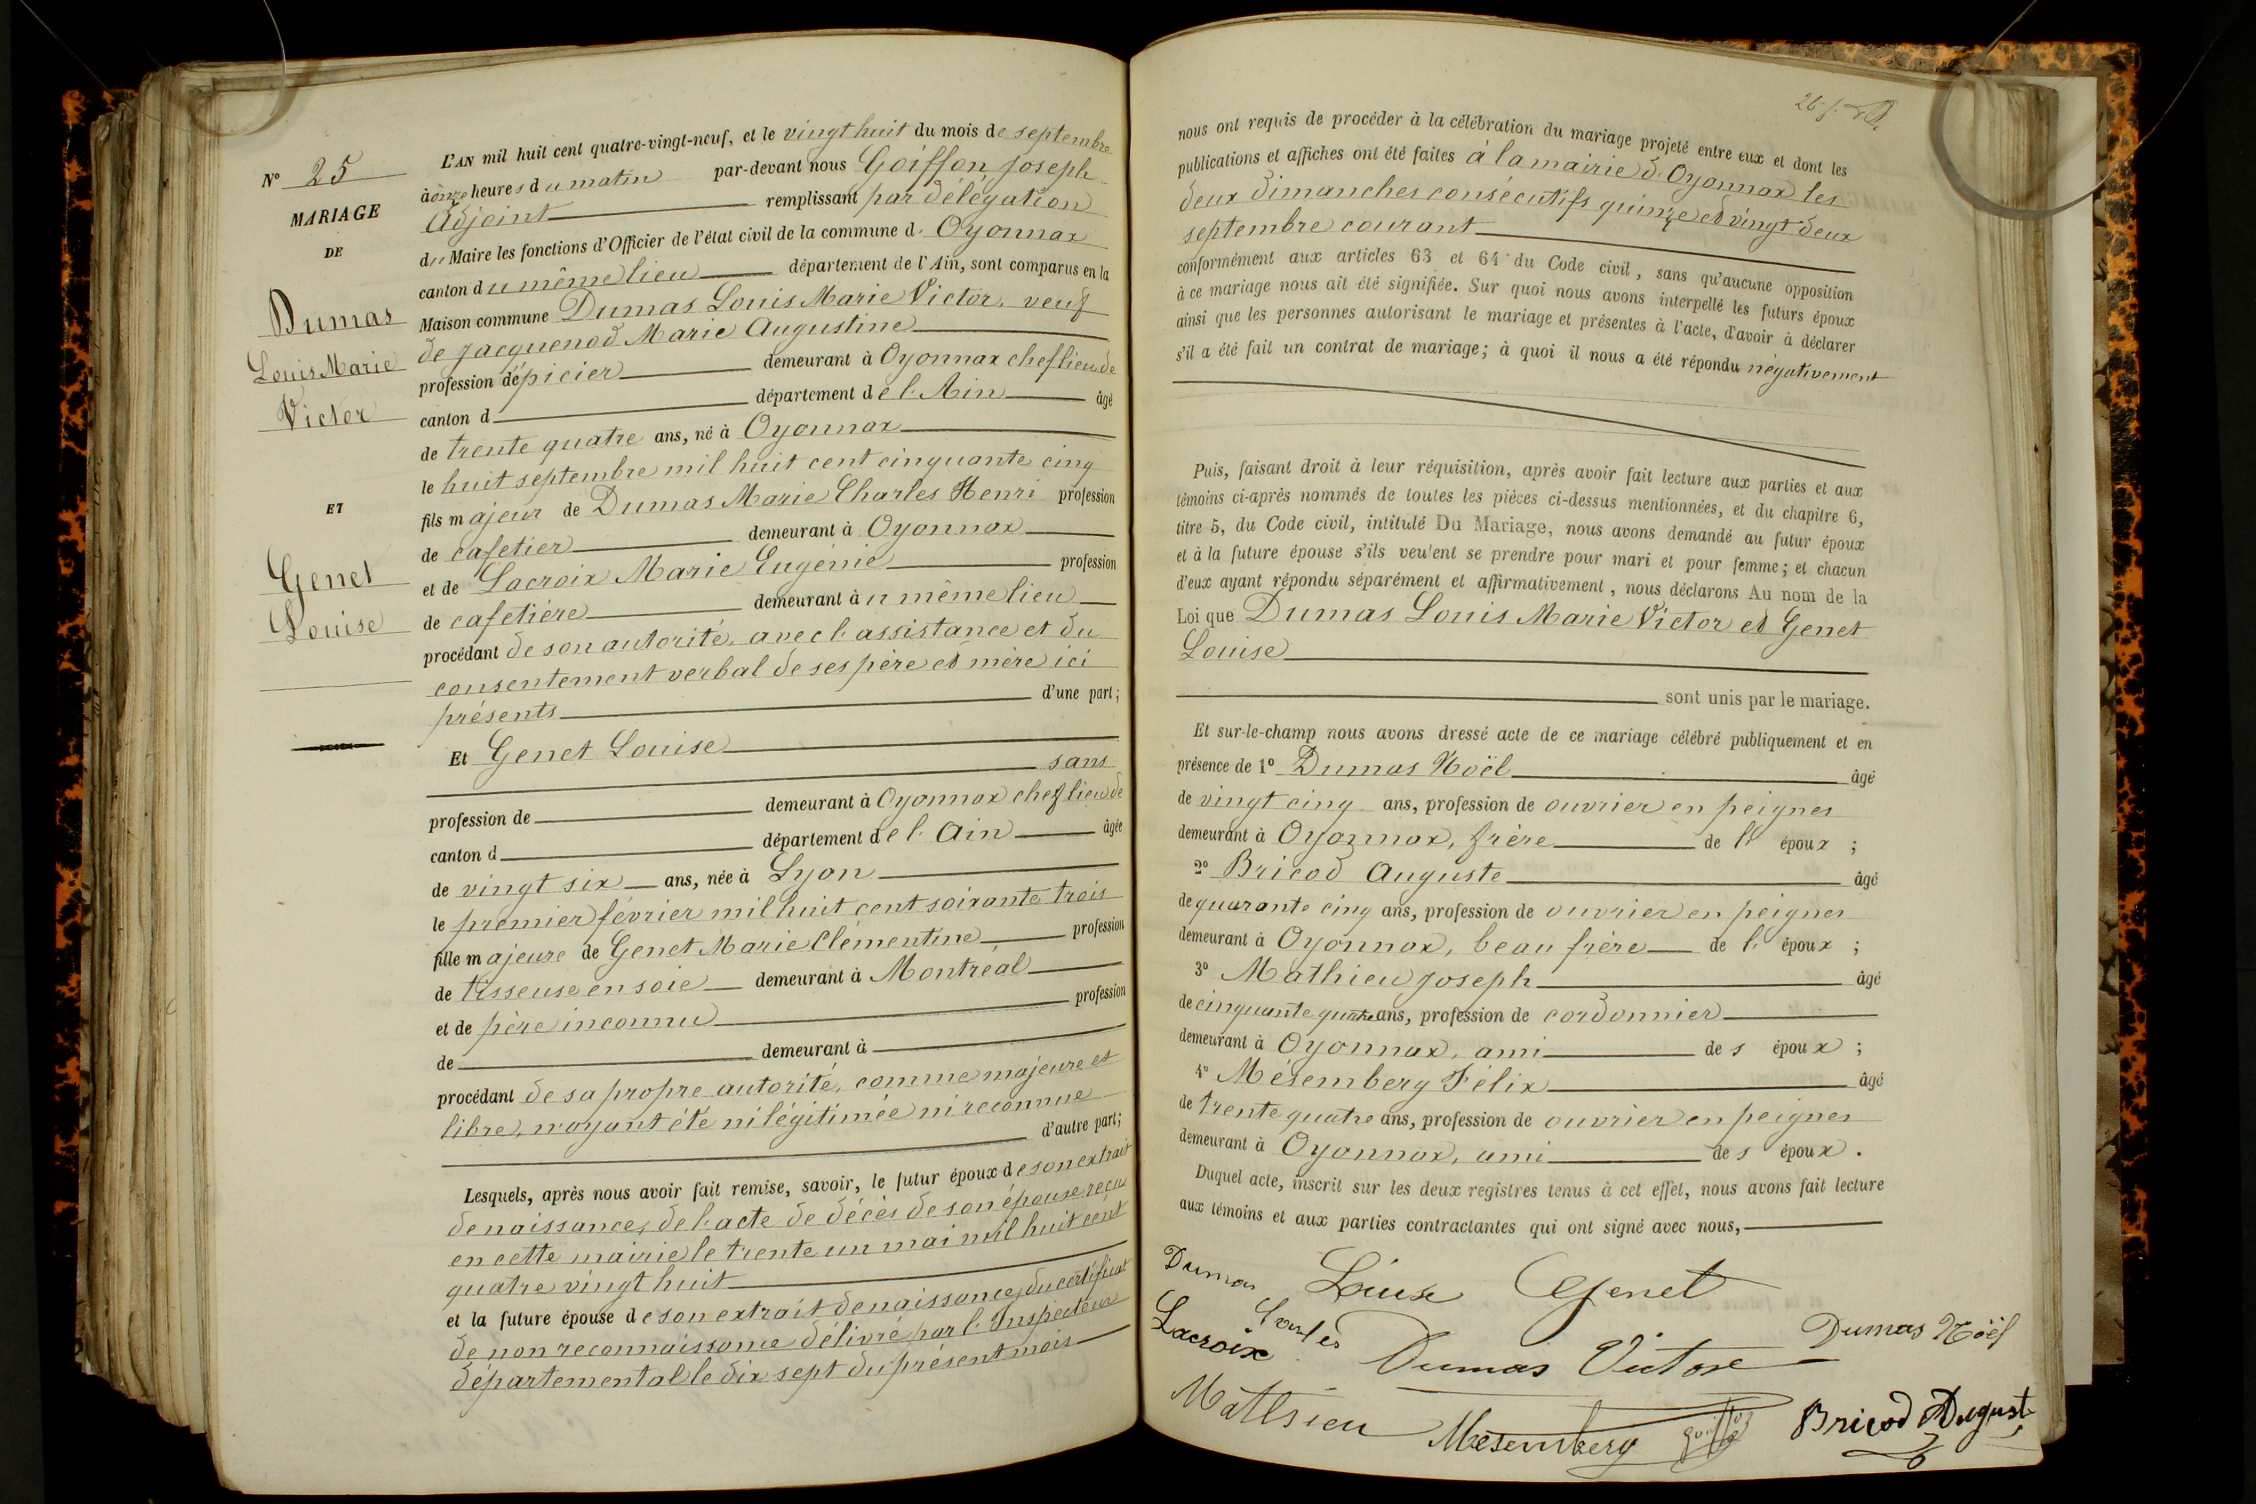 N° 25
MARIAGE
DE
Dumas
Louis Marie
Victor
ET
Genet
Louise
L'AN mil huit cent quatre-vingt-neuf, et le vingt huit du mois de septembre
à onze heures du matin par-devant nous Goiffon Joseph
Adjoint remplissant par délégation
du Maire les fonctions d'Officier de l'état civil de la commune d' Oyonnax
canton du même lieu département de l'Ain, sont comparus en la
Maison commune Dumas Louis Marie Victor, veuf
de Jacquenod Marie Augustine
profession d'épicier demeurant à Oyonnax chef lieu de
canton d département de l'Ain âgé
de trente quatre ans, né à Oyonnax
le huit septembre mil huit cent cinquante cinq
fils majeur de Dumas Marie Charles Henri profession
de cafetier demeurant à Oyonnax
et de Lacroix Marie Eugénie profession
de cafetière demeurant à u même lieu
procédant de son autorité, avec l'assistance et du
consentement verbal de ses père et mère ici
présents d'une part;
Et Genet Louise
sans
profession de demeurant à Oyonnax chef lieu de
canton d département de l'Ain âgée
de vingt six ans, née à Lyon
le premier février mil huit cent soixante trois
fille majeure de Genet Marie Clémentine profession
de tisseuse en soie demeurant à Montréal
et de père inconnu profession
de demeurant à
procédant de sa propre autorité, comme majeure et
libre, n'ayant été ni légitimée ni reconnue
d'autre part;
Lesquels, après nous avoir fait remise, savoir, le futur époux de son extrait
de naissance, de l'acte de décès de son épouse reçu
en cette mairie le trente un mai mil huit cent
quatre vingt huit
et la future épouse de son extrait de naissance, du certificat
de non reconnaissance délivré par l'Inspecteur
départemental le dix sept du présent mois
nous ont requis de procéder à la célébration du mariage projeté entre eux et dont les
publications et affiches ont été faites à la mairie d'Oyonnax les
deux dimanches consécutifs quinze et vingt deux
septembre courant
conformément aux articles 63 et 64 du Code civil, sans qu'aucune opposition
à ce mariage nous ait été signifiée. Sur quoi nous avons interpellé les futurs époux
ainsi que les personnes autorisant le mariage et présentes à l'acte, d'avoir à déclarer
s'il a été fait un contrat de mariage; à quoi il nous a été répondu négativement
Puis, faisant droit à leur réquisition, après avoir fait lecture aux parties et aux
témoins ci-après nommés de toutes les pièces ci-dessus mentionnées, et du chapitre 6,
titre 5, du Code civil, intitulé Du Mariage, nous avons demandé au futur époux
et à la future épouse s'ils veulent se prendre pour mari et pour femme; et chacun
d'eux ayant répondu séparément et affirmativement, nous déclarons Au nom de la
Loi que Dumas Louis Marie Victor et Genet
Louise
sont unis par le mariage.
Et sur-le-champ nous avons dressé acte de ce mariage célébré publiquement et en
présence de 1° Dumas Noël âgé
de vingt cinq ans, profession de ouvrier en peignes
demeurant à Oyonnax, frère de l' époux ;
2° Bricod Auguste âgé
de quarante cinq ans, profession de ouvrier en peignes
demeurant à Oyonnax, beau frère de l' époux ;
3° Mathieu Joseph âgé
de cinquante quatre ans, profession de cordonnier
demeurant à Oyonnax, ami de s époux ;
4° Mésemberg Félix âgé
de trente quatre ans, profession de ouvrier en peignes
demeurant à Oyonnax, ami de s époux .
Duquel acte, inscrit sur les deux registres tenus à cet effet, nous avons fait lecture
aux témoins et aux parties contractantes qui ont signé avec nous,
Dumas Louise Genet
Charles
Lacroix Dumas Victor Dumas Noël
Mathieu Mésemberg Bricod August